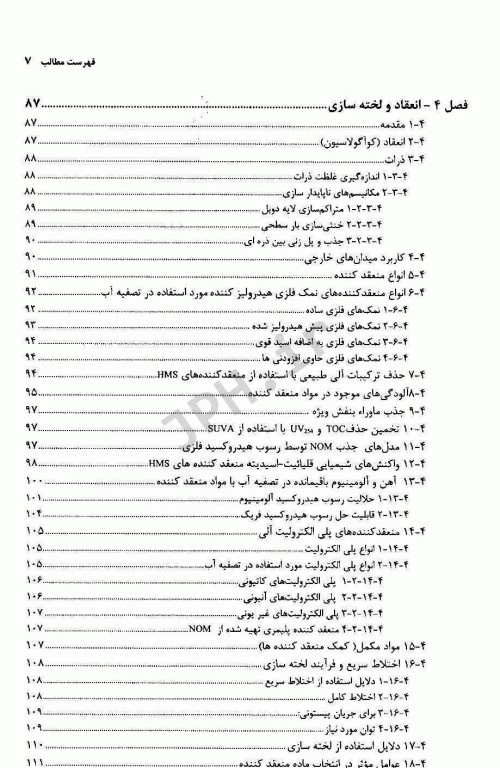 فهرست مطالب ۷
فصل ۴ - انعقاد و لخته سازی ..... ۸۷
۴-۱ مقدمه ..... ۸۷
۴-۲ انعقاد (کوآگولاسیون) ..... ۸۷
۴-۳ ذرات ..... ۸۸
۴-۳-۱ اندازه‌گیری غلظت ذرات ..... ۸۸
۴-۳-۲ مکانیسم‌های ناپایدار سازی ..... ۸۸
۴-۳-۲-۱ متراکم‌سازی لایه دوبل ..... ۸۹
۴-۳-۲-۲ خنثی‌سازی بار سطحی ..... ۸۹
۴-۳-۲-۳ جذب و پل زنی بین ذره ای ..... ۹۰
۴-۴ کاربرد میدان‌های خارجی ..... ۹۰
۴-۵ انواع منعقد کننده ..... ۹۱
۴-۶ انواع منعقدکننده‌های نمک فلزی هیدرولیز کننده مورد استفاده در تصفیه آب ..... ۹۲
۴-۶-۱ نمک‌های فلزی ساده ..... ۹۲
۴-۶-۲ نمک‌های فلزی پیش هیدرولیز شده ..... ۹۳
۴-۶-۳ نمک‌های فلزی به اضافه اسید قوی ..... ۹۴
۴-۶-۴ نمک‌های فلزی حاوی افزودنی ها ..... ۹۴
۴-۷ حذف ترکیبات آلی طبیعی با استفاده از منعقدکننده‌های HMS ..... ۹۴
۴-۸آلودگی‌های موجود در مواد منعقد کننده ..... ۹۵
۴-۹ جذب ماوراء بنفش ویژه ..... ۹۷
۴-۱۰ تخمین حذفTOC و UV254 با استفاده از SUVA ..... ۹۷
۴-۱۱ مدل‌های جذب NOM توسط رسوب هیدروکسید فلزی ..... ۹۷
۴-۱۲ واکنش‌های شیمیایی قلیائیت-اسیدیته منعقد کننده های HMS ..... ۹۸
۴-۱۳ آهن و آلومینیوم باقیمانده در تصفیه آب با مواد منعقد کننده ..... ۱۰۰
۴-۱۳-۱ حلالیت رسوب هیدروکسید آلومینیوم ..... ۱۰۱
۴-۱۳-۲ قابلیت حل رسوب هیدروکسید فریک ..... ۱۰۴
۴-۱۴ منعقدکننده‌های پلی الکترولیت آلی ..... ۱۰۵
۴-۱۴-۱ انواع پلی الکترولیت ..... ۱۰۵
۴-۱۴-۲ انواع پلی الکترولیت مورد استفاده در تصفیه آب ..... ۱۰۵
۴-۱۴-۲-۱ پلی الکترولیت‌های کاتیونی ..... ۱۰۶
۴-۱۴-۲-۲ پلی الکترولیت‌های آنیونی ..... ۱۰۶
۴-۱۴-۲-۳ پلی الکترولیت‌های غیر یونی ..... ۱۰۷
۴-۱۴-۲-۴ منعقد کننده پلیمری تهیه شده از NOM ..... ۱۰۷
۴-۱۵ مواد مکمل( کمک منعقد کننده ها) ..... ۱۰۷
۴-۱۶ اختلاط سریع و فرآیند لخته سازی ..... ۱۰۸
۴-۱۶-۱ دلایل استفاده از اختلاط سریع ..... ۱۰۸
۴-۱۶-۲ اختلاط کامل ..... ۱۰۸
۴-۱۶-۳ برای جریان پیستونی: ..... ۱۰۹
۴-۱۶-۴ توان مورد نیاز ..... ۱۰۹
۴-۱۷ دلایل استفاده از لخته سازی ..... ۱۱۰
۴-۱۸ عوامل مؤثر در انتخاب ماده منعقد کننده ..... ۱۱۱
JPH.ir